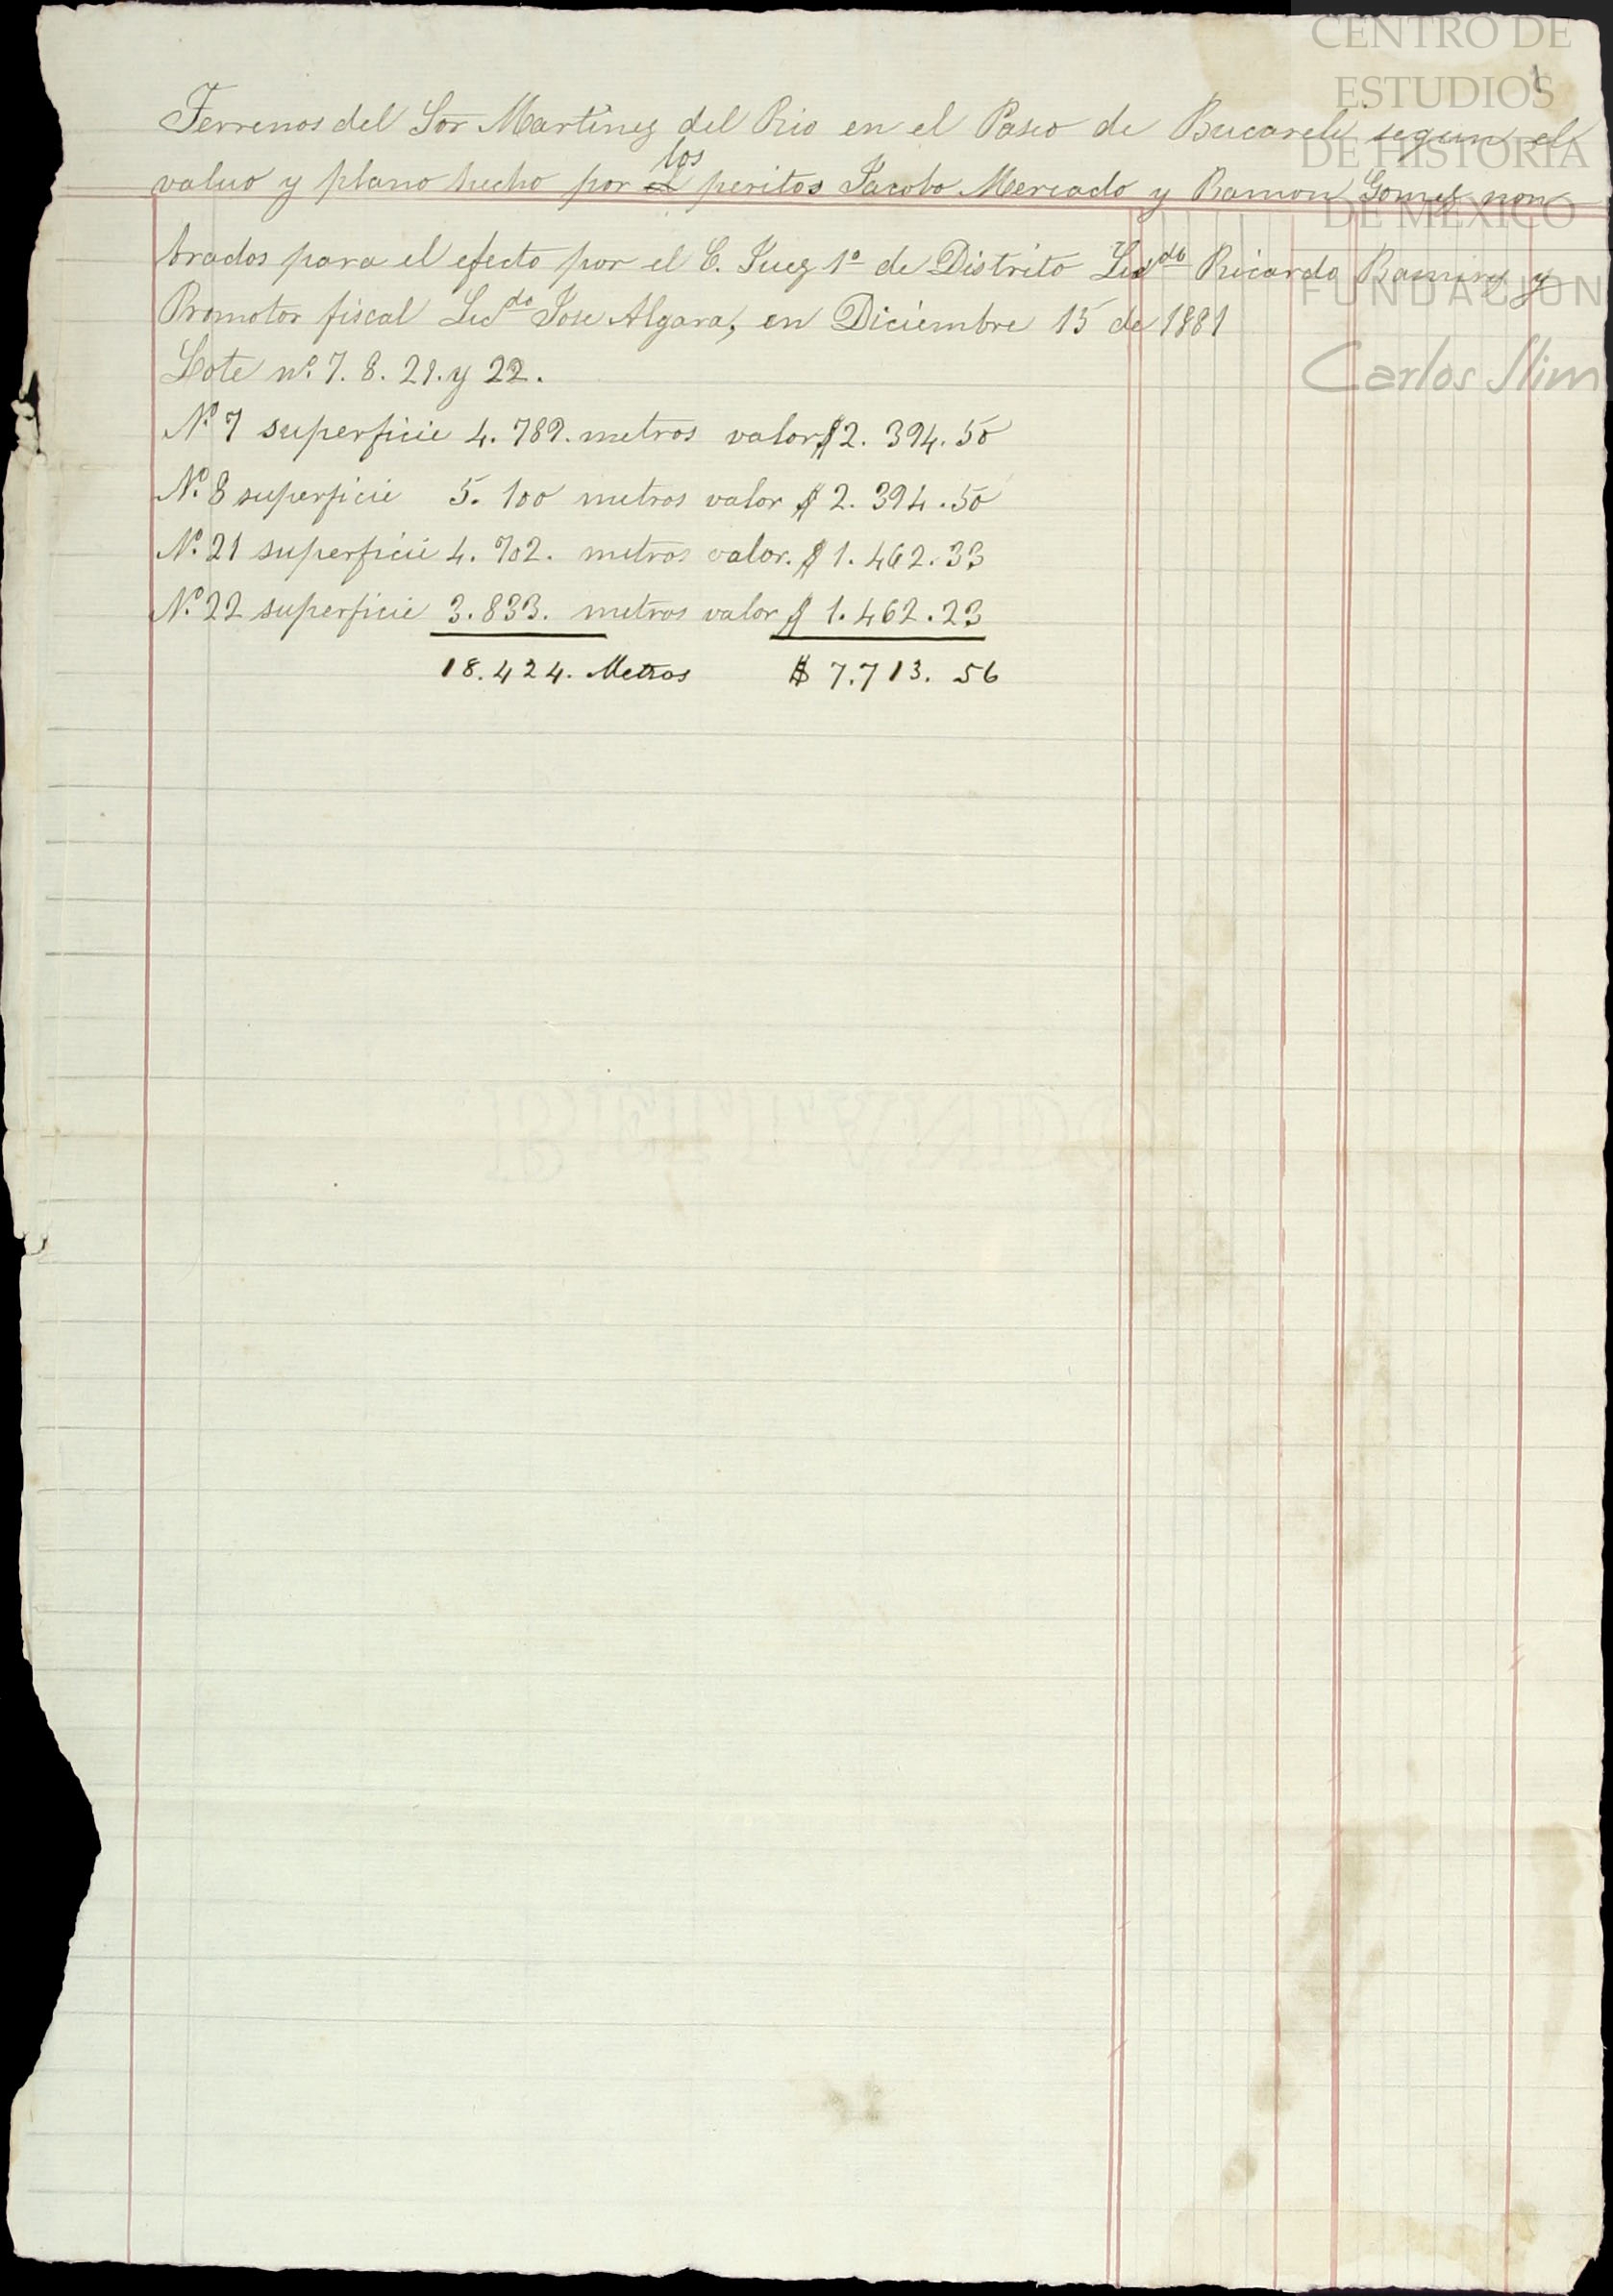 CENTRO DE
ESTUDIOS
DE HISTORIA
DE MÉXICO
FUNDACIÓN
Carlos Slim
1
Terrenos del Sor Martinez del Rio en el Paseo de Bucareli segun el
valuo y plano hecho por el los peritos Jacobo Mercado y Ramon Gomez nom
brados para el efecto por el C. Juez 1º de Distrito Licdo Ricardo Ramirez y
Promotor fiscal Licdo Jose Algara, en Diciembre 15 de 1881
Lote nº. 7. 8. 21. y 22.
Nº. 7 superficie 4. 789. metros valor $ 2. 394. 50
Nº. 8 superficie 5. 100 metros valor $ 2. 394. 50
Nº. 21 superficie 4. 702. metros valor. $ 1. 462. 33
Nº. 22 superficie 3. 833. metros valor $ 1. 462. 23
18. 424. Metros $ 7. 713. 56